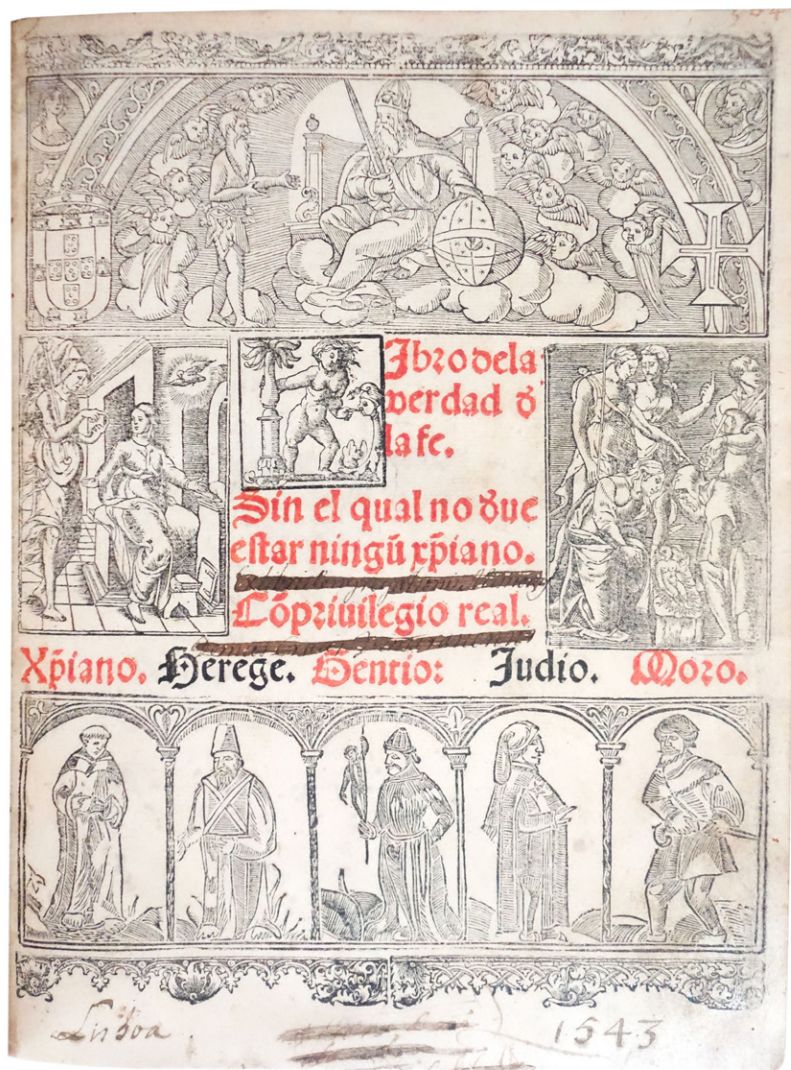 Libro dela
verdad đ
la fe.
Sin el qual no đue
estar ningũ xp̄iano.
Cõpriuilegio real.
Xp̄iano. Herege. Gentio: Judio. Moro.
Lisboa
1543